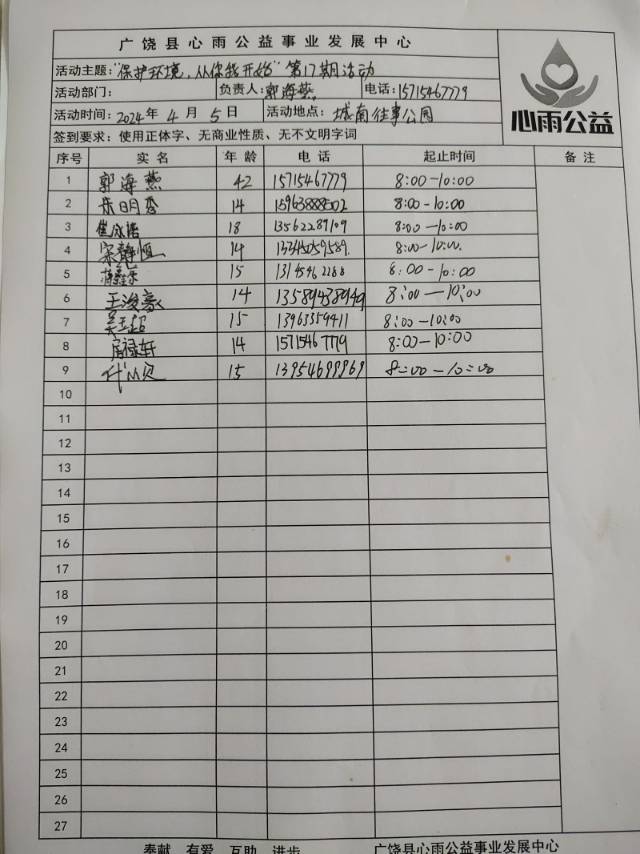 广饶县心雨公益事业发展中心
活动主题:"保护环境,从你我开始"第17期活动
活动部门: 负责人:郭海燕 电话:15715467779
活动时间:2024年4月5日 活动地点:城南往事公园
心雨公益
签到要求:使用正体字、无商业性质、无不文明字词
序号 实名 年龄 电话 起止时间 备注
1 郭海燕 42 15715467779 8:00-10:00
2 14 15963888502 8:00-10:00
3 18 13562289109 8:00-10:00
4 宋静恒 14 13345059589. 8:00-10:00.
5 15 8:00-10:00
6 王浚豪 14 13589438949 8:00-10:00
7 吴玉超 15 13963359411 8:00-10:00
8 房禄轩 14 15715467779 8:00-10:00
9 15 13954699969 8:00-10:00
10
11
12
13
14
15
16
17
18
19
20
21
22
23
24
25
26
27
奉献 有爱 互助 进步 广饶县心雨公益事业发展中心